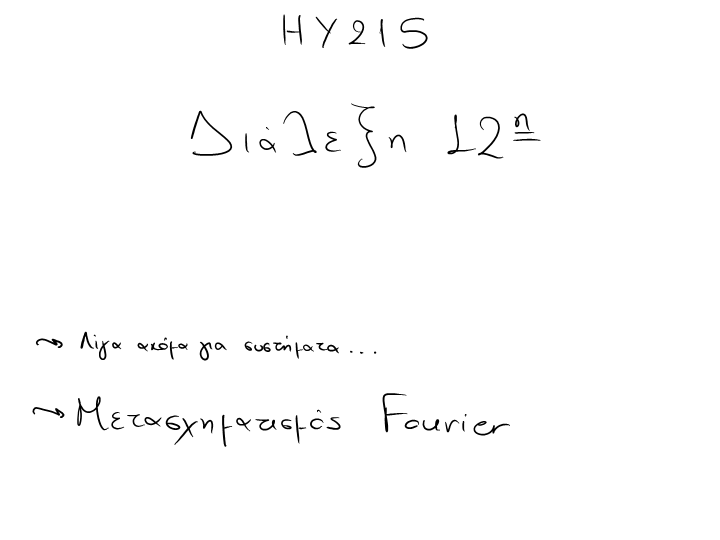 HY215
Διάλεξη 12η
→ Λίγα ακόμα για συστήματα...
→ Μετασχηματισμός Fourier